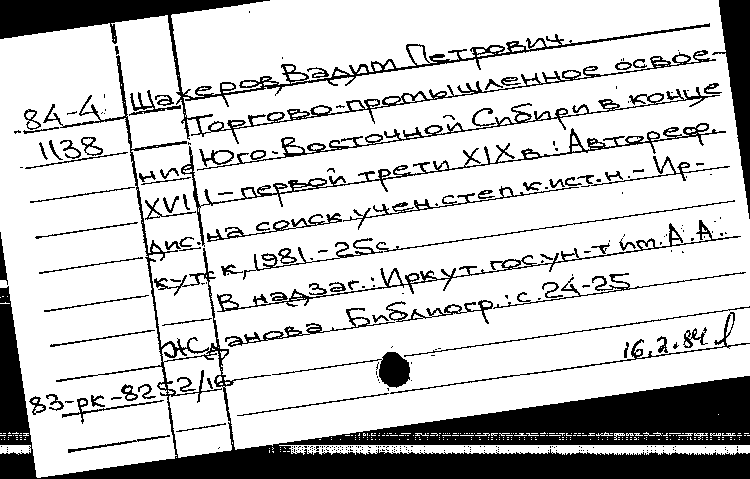 Шахеров, Вадим Петрович.
84-4 Торгово-промышленное освое-
1138 ние Юго-Восточной Сибири в конце
XVIII - первой трети XIX в.: Автореф.
дис. на соиск. учен. степ. к. ист. н. - Ир-
кутск, 1981. - 25с.
В надзаг.: Иркут. гос. ун-т им. А.А.
Жданова. Библиогр.: с. 24-25
16.2.84
83-рк-8252/16